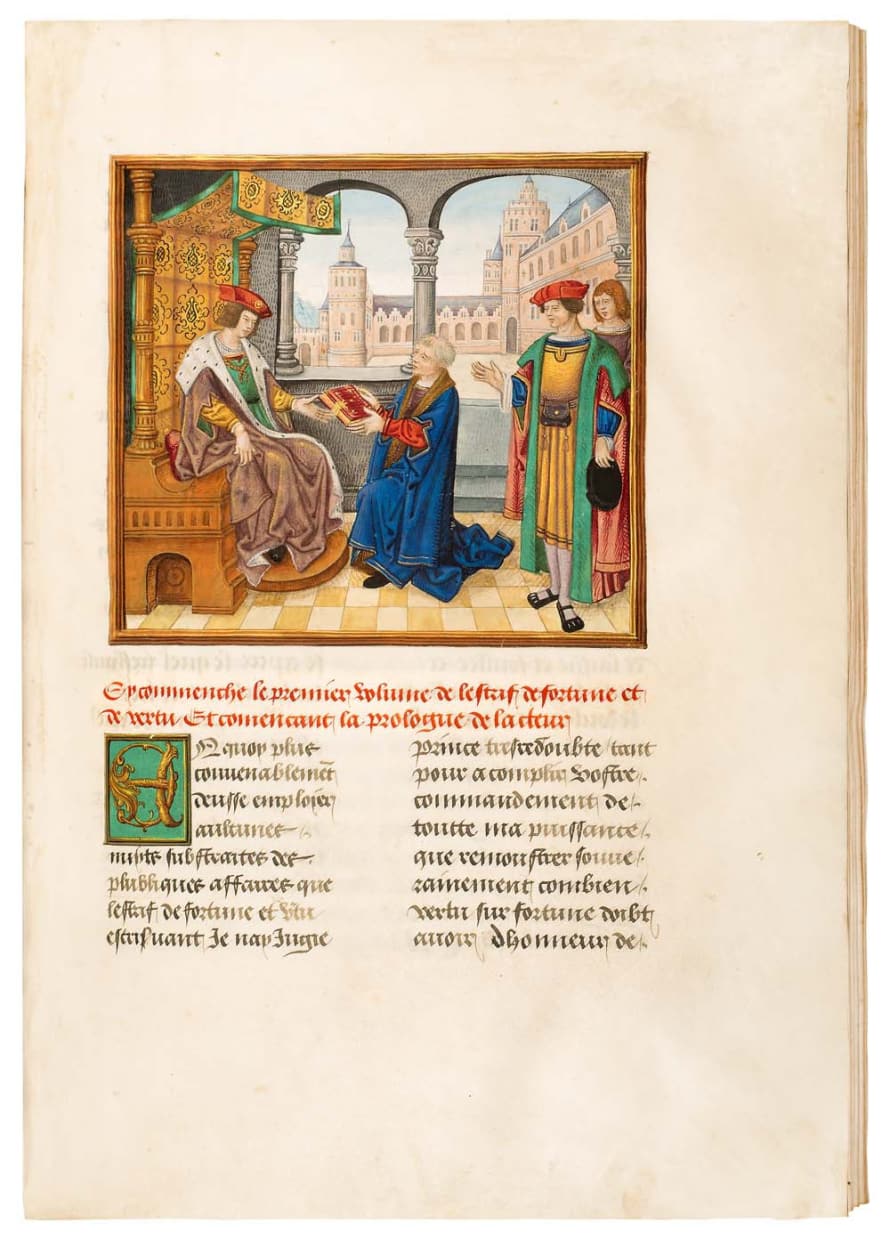 Cy commenche le premier volume de lestrif de fortune et
de vertu Et comencant la prologue de lacteur
En quoy plus
convenablement
deusse emploier
aulcunes
nuyts substraites des
publiques affaires que
lestrif de fortune et vtu
escripvant Je nay Jugie
prince tresredoubte tant
pour acomplir vostre
commandement de
toutte ma puissance
que remonstrer souve
rainement combien
vertu sur fortune doibt
avoir dhonneur de